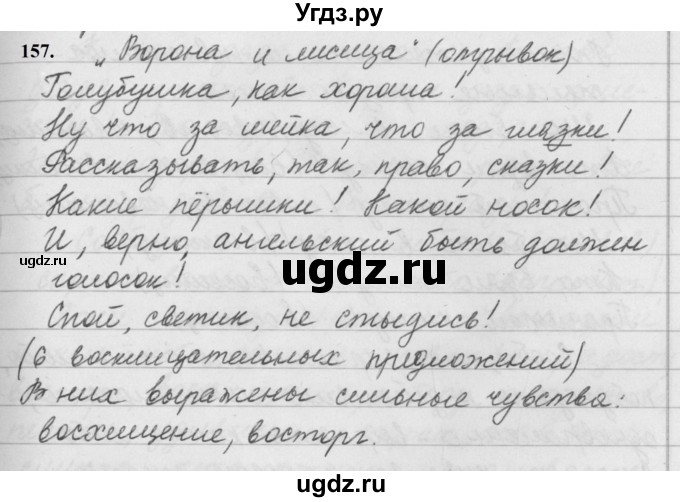 Угдз.ру
157. „Ворона и лисица“ (отрывок)
Голубушка, как хороша!
Ну что за шейка, что за глазки!
Рассказывать, так, право, сказки!
Какие пёрышки! Какой носок!
И, верно, ангельский быть должен
голосок!
Спой, светик, не стыдись!
(6 восклицательных предложений)
В них выражены сильные чувства:
восхищение, восторг.
ugdz.ru
ugdz.ru
ugdz.ru
ugdz.ru